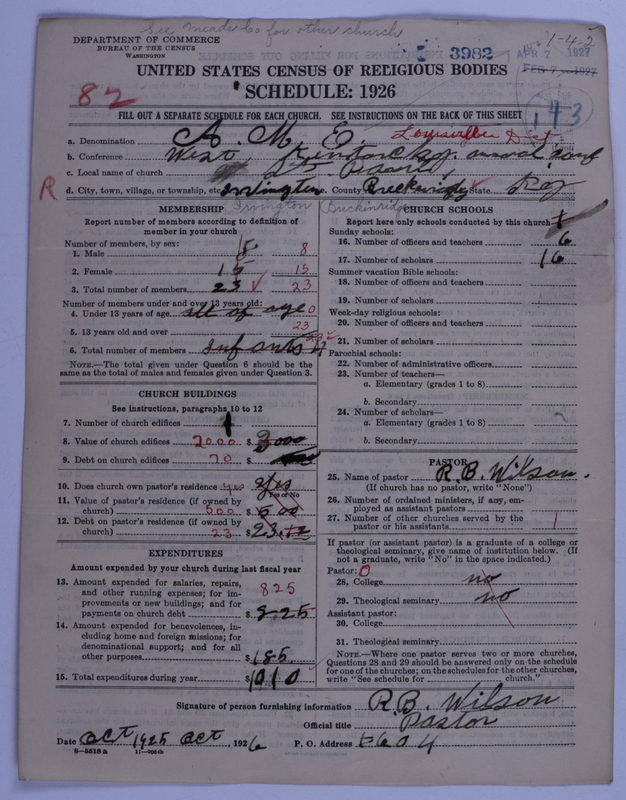 See Meade Co for other church
DEPARTMENT OF COMMERCE
BUREAU OF THE CENSUS
WASHINGTON
1-42
3982
APR 7 1927
FEB 7 1927
UNITED STATES CENSUS OF RELIGIOUS BODIES
82
SCHEDULE: 1926
143
FILL OUT A SEPARATE SCHEDULE FOR EACH CHURCH. SEE INSTRUCTIONS ON THE BACK OF THIS SHEET
a. Denomination A. M. E. Louisville Dist
b. Conference West Kentucky annual conf
c. Local name of church St.
R d. City, town, village, or township, etc. Irvington e. County Breckinridge State Ky
Irvington Breckinridge
MEMBERSHIP
Report number of members according to definition of
member in your church
Number of members, by sex:
1. Male 8
2. Female 15 15
3. Total number of members 23 23
Number of members under and over 13 years old:
4. Under 13 years of age all of age 0
5. 13 years old and over 23
6. Total number of members Infants
NOTE.—The total given under Question 6 should be
same as the total of males and females given under Question 3.
CHURCH BUILDINGS
See instructions, paragraphs 10 to 12
7. Number of church edifices 1
8. Value of church edifices 2000 $ 2000
9. Debt on church edifices 70 $
10. Does church own pastor's residence yes yes
Yes or No
11. Value of pastor's residence (if owned by
church) 500 $ 500
12. Debt on pastor's residence (if owned by
church) 23 $ 23.12
EXPENDITURES
Amount expended by your church during last fiscal year
13. Amount expended for salaries, repairs,
and other running expenses; for im-
provements or new buildings; and for
payments on church debt $ 825
825
14. Amount expended for benevolences, in-
cluding home and foreign missions; for
denominational support; and for all
other purposes $ 185
15. Total expenditures during year $ 1010
CHURCH SCHOOLS
Report here only schools conducted by this church
Sunday schools:
16. Number of officers and teachers 6
17. Number of scholars 16
Summer vacation Bible schools:
18. Number of officers and teachers
19. Number of scholars
Week-day religious schools:
20. Number of officers and teachers
21. Number of scholars
Parochial schools:
22. Number of administrative officers
23. Number of teachers—
a. Elementary (grades 1 to 8)
b. Secondary
24. Number of scholars—
a. Elementary (grades 1 to 8)
b. Secondary
PASTOR
25. Name of pastor R. B. Wilson
(If church has no pastor, write "None")
26. Number of ordained ministers, if any, em-
ployed as assistant pastors
27. Number of other churches served by the
pastor or his assistants 1
If pastor (or assistant pastor) is a graduate of a college or
theological seminary, give name of institution below. (If
not a graduate, write "No" in the space indicated.)
Pastor: 0
28. College no
29. Theological seminary no
Assistant pastor:
30. College
31. Theological seminary
NOTE.—Where one pastor serves two or more churches,
Questions 28 and 29 should be answered only on the schedule
for one of the churches; on the schedules for the other churches,
write "See schedule for church."
Signature of person furnishing information R. B. Wilson
Official title Pastor
Date Oct 1925 Oct, 1926 P. O. Address 5604
8—5518 a